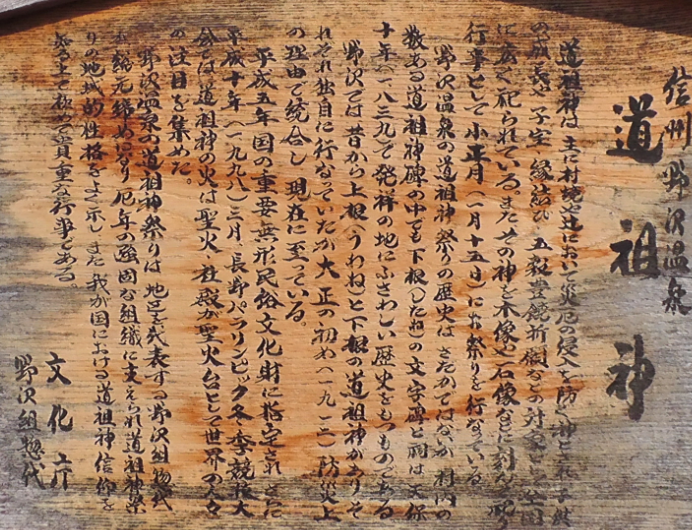 信州 野沢温泉
道祖神
道祖神は、主に村境や辻において災厄の侵入を防ぐ神とされ、子供
の成長や子宝、縁結び、五穀豊饒祈願などの対象として全国
に広く祀られている。またその神を木像や石像などに刻み、祭り
行事として小正月(一月十五日)にお祭りを行なっている。
野沢温泉の道祖神祭りの歴史は、さだかではないが、村内の
数ある道祖神碑の中でも下根(したね)の文字碑と祠は天保
十年(一八三九)で発祥の地にふさわしい歴史をもつものである。
野沢では昔から上根(うわね)と下根の道祖神がありそ
れぞれ独自に行なっていたが大正の初め(一九一二)防災上
の理由で統合し、現在に至っている。
平成五年国の重要無形民俗文化財に指定された。また
平成十年(一九九八)三月、長野パラリンピック冬季競技大
会では道祖神の火は聖火、社殿が聖火台として世界の人々
の注目を集めた。
野沢温泉の道祖神祭りは、地区を代表する野沢組惣代
が総元締めになり、厄年の強固な組織に支えられ道祖神祭
りの地域的性格をよく示し、また我が国における道祖神信仰を
知る上で極めて貴重な行事である。
文化庁
野沢組惣代